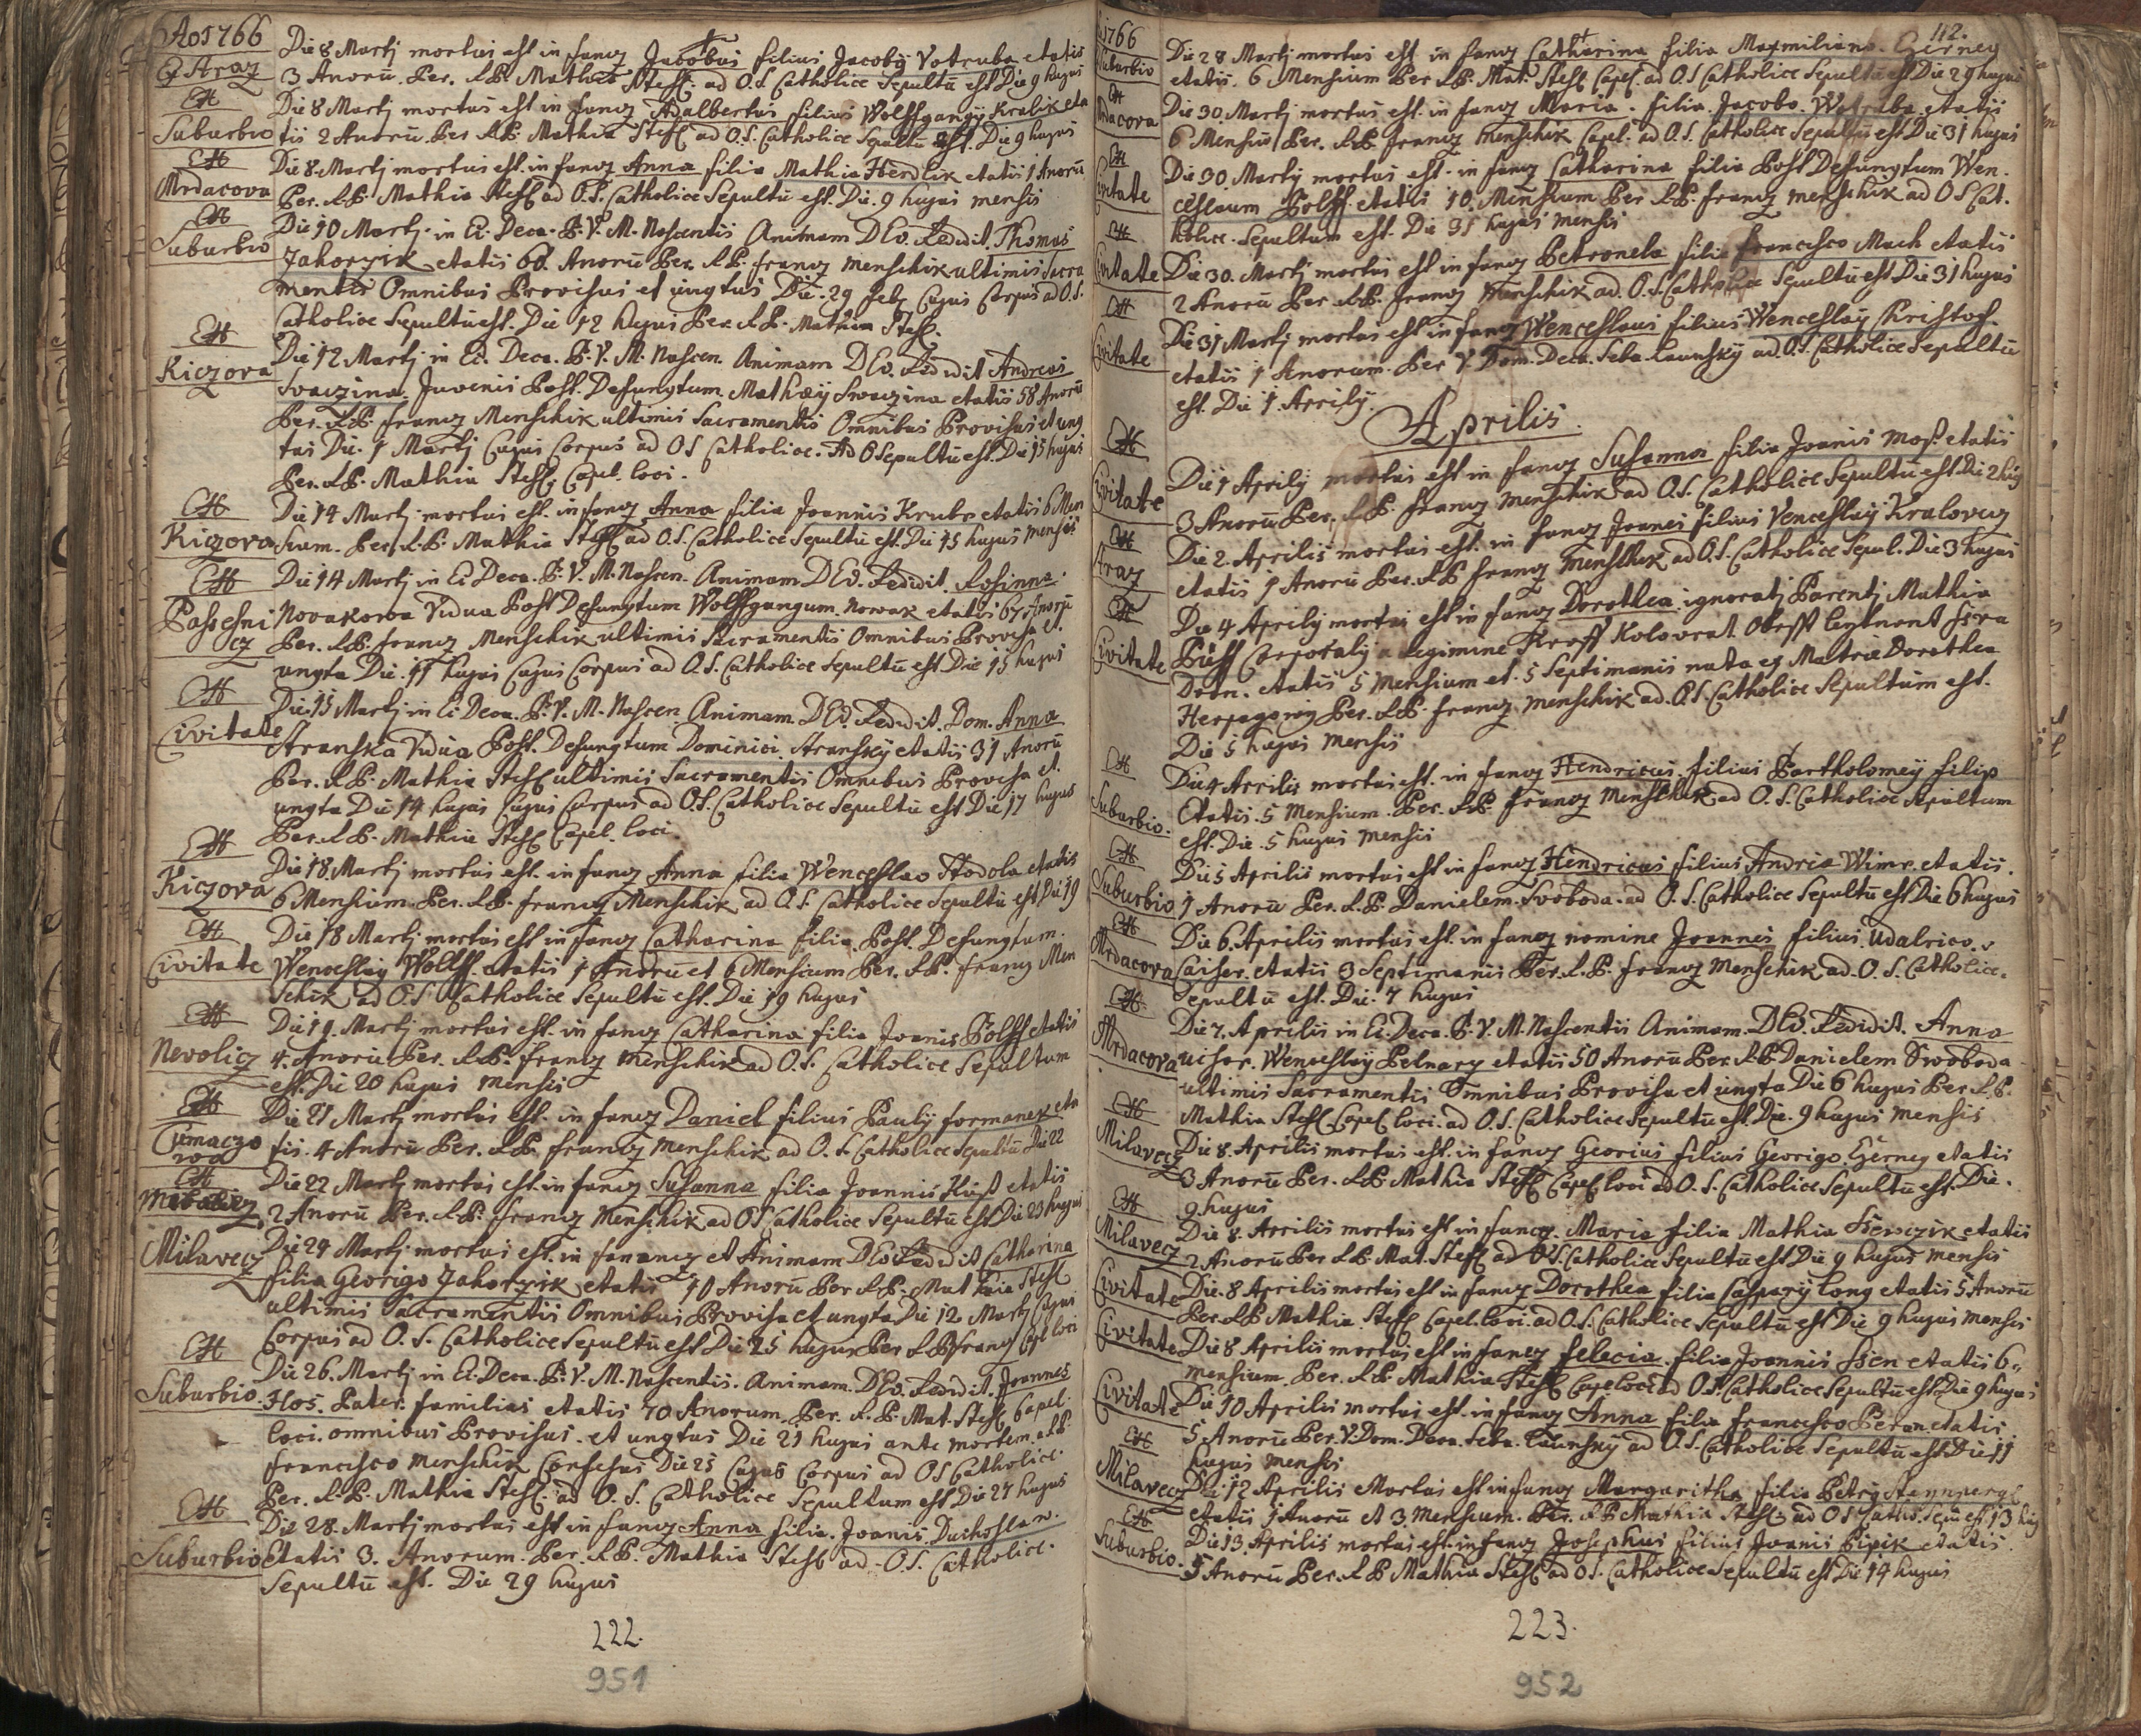 Ao 1766
Die 8 Martj mortus est in fancz Jacobus filius Jacobÿ Votruba etatis
3 Anorū Per. R.P. Mathia Stefl. ad O.S. Catholice Sepultū est Die 9 hujus
Die 8 Martj mortus est in fancz Adalbertus filius Wolffgangÿ Kralik eta
Suburbio
tis 2 Anorū Per. R.P. Mathia Stefl ad O.S. Catholice Sepultū est. Die 9 hujus
Die 8 Martj mortus est in fancz Anna filia Mathia Herdlik etatis 1 Anorū
Mrdacova
Per. R.P. Mathia Stefl ad O.S. Catholice Sepultū est. Die. 9 hujus mensis
Die 10 Martj in Ei. Deca. B.V.M. Nascentis Animam DEO. Redidit Thomas
Suburbio
Zahorzik etatis 60. Anorū Per. R.P. francz Menschik ultimis Sacra
mentis Omnibus Provisus et ungtus Die. 29 feb. Cujus Corpus ad O.S.
Catholice Sepultū est. Die 12 hujus Per R.P. Mathia Stefl.
Die 12 Martj in Ei. Deca. B.V.M. Nascen. Animam DEO. Redidit Andreas
Kiczova
Svaczina. Juvenis Post. Defungtum. Mathæÿ Swaczina etatis 58 Anorū
Per. R.P. francz Menschik ultimis Sacramentis Omnibus Provisus et ung
tus Die. 1 Martj Cujus Corpus ad OS Catholice. Ad O Sepultū est. Die 15 hujus
Per. R.P. Mathia Stefl. Capel. loci.
Die 14 Martj mortus est. in fancz Anna filia Joannis Krubr etatis 6 Men
Kiczova
sium. Per. R.P. Mathia Stefl ad O.S. Catholice Sepultū est. Die 15 hujus mensis
Die 14 Martj in Ei Deca. B.V.M. Nascen. Animam DEO. Redidit. Rosinna.
Passesni
cz
Novakowa Vidua Post Defungtum Wolffgangum. Nowak etatis 67 Anorū
Per. R.P. francz Menschik ultimis Sacramentis Omnibus Provisa et.
ungta Die. 11 hujus Cujus Corpus ad O.S. Catholice Sepultū est Die 15 hujus
Die 15 Martj in Ei Deca. B.V.M. Nascen. Animam. DEO. Redidit. Dom. Anna
Civitate
Stranska Vidua Post. Defungtum Dominici. Stranskÿ etatis 31 Anorū
Per. R.P. Mathia Stefl ultimis Sacramentis Omnibus Provisa et.
ungta Die 14 hujus Cujus Corpus ad O.S. Catholice Sepultū est Die 17 hujus
Per. R.P. Mathia Stefl Capel. loci.
Die 18 Martj mortus est. in fancz Anna filia Wenceslao Stodola etatis
Kiczova
6 Mensium. Per. R.P. francz Menschik ad O.S. Catholice Sepultū est Die 19
Die 18 Martj mortus est in fancz Catharina filia Post. Defungtum.
Civitate
Wenceslaÿ Wolff. etatis 1 Anorū et 6 Mensium Per. R.P. francz Men
schik ad O.S. Catholice Sepultū est. Die 19 hujus
Die 19. Martj mortus est. in fancz Catharina filia Joanis Polff etatis
Nevolicz
4. Anorū Per. R.P. francz Menschik ad O.S. Catholice Sepultum
est. Die 20 hujus mensis
Die 21 Martj mortus est. in fancz Daniel filius Paulÿ formanek eta
tis. 4 Anorū Per. R.P. francz Menschik ad O.S. Catholice Sepultū Die 22
Die 22 Martj mortus est. in fancz Susanna filia Joannis etatis
2 Anorū Per. R.P. francz Menschik ad OS Catholice Sepultū est Die 23 hujus
Milavecz
Die 24 Martj. mortus est. in fanancz et Animam DEO Redidit Catharina
filia Georigo Zahorzik etatis 10 Anorū Per R.P. Mathia Stefl
ultimis Sacramentis Omnibus Provisa et ungta Die 12 Martj Cujus
Corpus ad O.S. Catholice Sepultū est Die 25 hujus Per R.P. francz Cpl loci
Die 26. Martj in Ei. Deca. B.V.M. Nascentis. Animam. DEO. Redidit. Joannes
Suburbio.
Hos. Pater. familias etatis 70 Anorum. Per. R.P. Mat. Stefl Capel.
loci. omnibus Provisus et ungtus Die 21 hujus ante mortem a R.P.
francisco Menschik Confesus Die 25 Cujus Corpus ad OS Catholice.
Per. R.P. Mathia Stefl. ad O.S. Catholice Sepultum est Die 27 hujus
Die 28. Martj mortus est in fancz Anna filia. Joanis. Duchoslaw.
Suburbio
Etatis 3. Anorum. Per. R.P. Mathia Stefl ad. O.S. Catholice.
Sepultū est. Die 29 hujus
222.
951
1766
112.
Suburbio
Die 28 Martj mortus est in fancz Catharina filia Maxmiliano. Czerney
etatis. 6 Mensium Per R.P. Mat. Stefl Capel. ad O.S Catholice Sepultū est Die 29 hujus
Mrdacova
Die 30. Martj mortus est. in fancz Maria. filia. Jacobo. Wotruba. etatis
6 Mensiū Per. R.P. francz Menschik Capel. ad O.S. Catholice Sepultū est Die 31 hujus
Civitate
Die 30. Martÿ mortus est. in fancz Catharina filia Post Defungtum Wen.
ceslaum Polff. etatis 10. Mensium Per R.P. francz Menschik ad OS Cat.
holice. Sepultum est. Die 31 hujus mensis
Civitate
Die 30. Martj mortus est in fancz Petronela filia francisco Mach etatis
2 Anorū Per R.P. francz Menschik ad. O.S. Catholice Sepultū est Die 31 hujus
Civitate
Die 31 Martj mortus est in fancz Wenceslaus filius Wenceslaÿ Christof.
etatis 1 Anorum. Per V. Dom. Deca. Seba. Launskÿ ad. O.S. Catholice Sepultū
est. Die 1. Aprilÿ.
Aprilis.
Civitate
Die 1 Aprilÿ mortus est in fancz Susanna filia Joanis Mos. etatis
3 Anorū Per. R.P. francz Menschik ad O.S. Catholice Sepultū est Die 2 huj
Die 2. Aprilis mortus est. in fancz Joanes filius Venceslaÿ Kralovecz
etatis 1 Anorū Per. R.P francz Menschik ad O.S. Catholice Sepul. Die 3 hujus
Civitate
Die 4 Aprilÿ mortus est in fancz Dorothea ignoratj Parentj Mathia
Corporalÿ a Regimine Kolovrat
etatis 5 Mensium et. 5 Septimanis nata ex Matrÿ Dorothea
Per. R.P. francz Menschik ad. O.S. Catholice Sepultum est.
Die 5 hujus Mensis
Suburbio.
Die 4 Aprilis mortus est. in fancz Hendricus. filius Partholomeÿ filip
Etatis. 5 Mensium. Per. R.P. francz Menschik ad O.S. Catholice Sepultum
est. Die. 5 hujus Mensis
Suburbio
Die 5 Aprilis mortus est in fancz Hendricus filius Andria Wimr. etatis.
1 Anorū Per. R.P. Danielem. Svoboda. ad O.S. Catholice Sepultū est Die 6 hujus
Mrdacova
Die 6. Aprilis mortus est. in fancz nomine Joannes filius. Udalrico.
Caiser. etatis 3 Septimanis Per. R.P. francz Menschik ad. O.S. Catholice.
Sepultū est. Die. 7 hujus
Mrdacova
Die 7. Aprilis in Ei. Deca. B.V.M. Nascentis Animam. DEO. Redidit. Anna
uchor. Wenceslaÿ Pelnarz etatis 50 Anorū Per. R.P. Danielem Swoboda
ultimis Sacramentis Omnibus Provisa et ungta Die 6 hujus Per. R.P.
Mathia Stefl Capel loci. ad O.S. Catholice Sepultū est. Die. 9 hujus mensis
Milavecz
Die 8. Aprilis mortus est. in fancz Georius filius Georigo Czerney etatis
3 Anorū Per. R.P. Mathia Stefl Capel loci ad O.S. Catholice Sepultū est. Die.
9. hujus
Milavecz
Die 8. Aprilis mortus est in fancz. Maria filia Mathia etatis
2. Anorū Per R.P. Mat. Stefl ad O.S. Catholice Sepultū est Die 9 hujus mensis
Civitate
Die 8 Aprilis mortus est in fancz Dorothea filia Casparÿ Long etatis 5 Anorū
Per. R.P. Mathia. Stefl Capel. loci. ad. O.S. Catholice Sepultū est Die 9 hujus mensis
Civitate
Die 8 Aprilis mortus est in fancz felecia. filia Joannis etatis 6
mensium. Per. R.P. Mathia Stefl Cape loci ad O.S. Catholice Sepultū est Die 9 hujus
Civitate
Die 10 Aprilis mortus est. in fancz Anna filia francisco Peron etatis
5. Anorū Per. V. Dom. Deca. Seba. Launskÿ ad O.S. Catholice Sepultū est Die 11
hujus mensis
Milavecz
Die 12 Aprilis Mortus est in fancz Margaritha filia Petrÿ
etatis 1 Anorū et 3 Mensium. Per. R.P Mathia Stefl ad OS Catho. Sepū est 13 huj
Suburbio.
Die 13. Aprilis mortus est. in fancz Josephus filius Joanis Pipik etatis.
5 Anorū Per. R.P Mathia Stefl ad OS. Catholice Sepultū est Die 14 hujus
223.
952